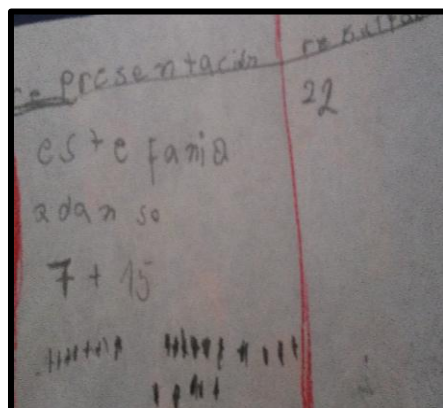 representación resultado
22
estefania
adanso
7 + 15